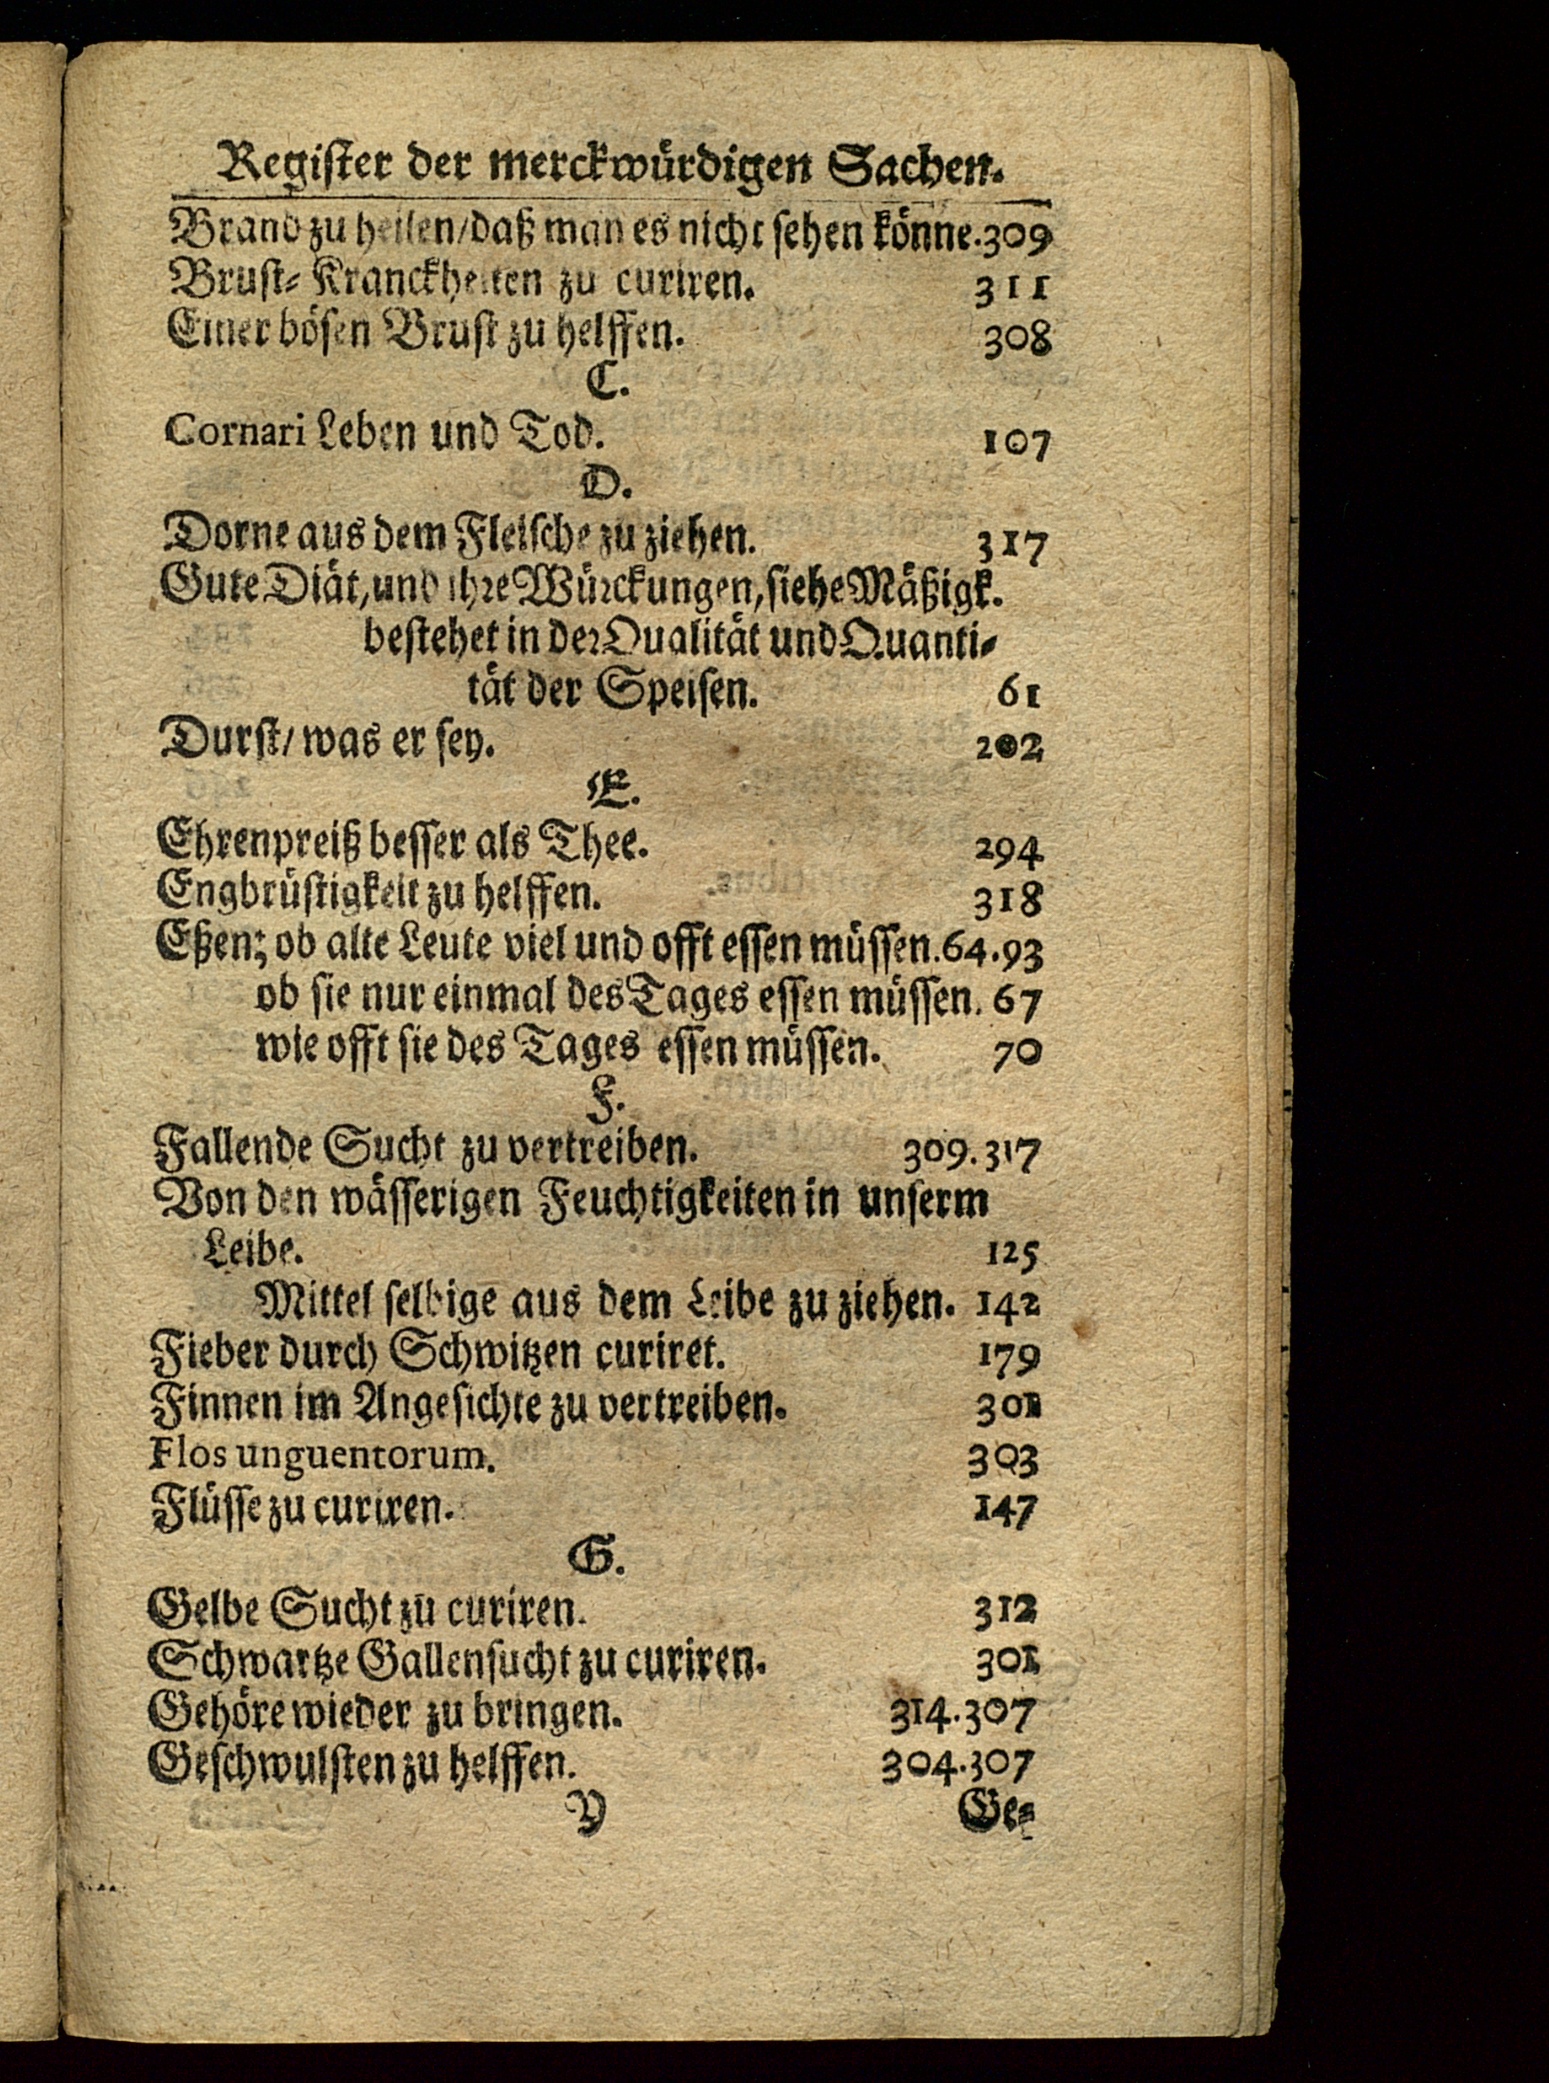 Register der merckwürdigen Sachen.
Brand zu heilen/daß man es nicht sehen könne.309
Brust-Kranckheiten zu curiren. 311
Einer bösen Brust zu helffen. 308
C.
Cornari Leben und Tod. 107
D.
Dorne aus dem Fleische zu ziehen. 317
Gute Diät, und ihre Würckungen, siehe Mäßigk.
bestehet in der Qualität und Quanti-
tät der Speisen. 61
Durst/ was er sey. 202
E.
Ehrenpreiß besser als Thee. 294
Engbrüstigkeit zu helffen. 318
Eßen; ob alte Leute viel und offt essen müssen.64.93
ob sie nur einmal des Tages essen müssen. 67
wie offt sie des Tages essen müssen. 70
F.
Fallende Sucht zu vertreiben. 309.317
Von den wässerigen Feuchtigkeiten in unserm
Leibe. 125
Mittel selbige aus dem Leibe zu ziehen. 142
Fieber durch Schwitzen curiret. 179
Finnen im Angesichte zu vertreiben. 301
Flos unguentorum. 303
Flüsse zu curiren. 147
G.
Gelbe Sucht zu curiren. 312
Schwartze Gallensucht zu curiren. 301
Gehöre wieder zu bringen. 314.307
Geschwulsten zu helffen. 304.307
Y Ge-